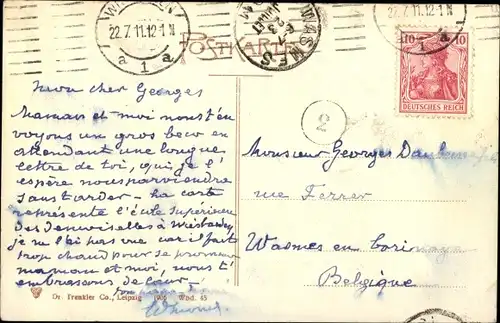 22.7.11.12-1N
a 1 a
POSTKARTE
WASMES
22.7.11.12-1N
a 1 a
10 10
DEUTSCHES REICH
2
Mon cher Georges
Maman et moi nous t'en
voyons un gros bec en
attendant une longue
lettre de toi, qui, je l'
espère nous parviendra
sans tarder - La carte
représente l'école supérieure
des demoiselles à Wiesbaden
je ne l'ai pas vue car il fait
trop chaud pour se promener
maman et moi, nous t'
embrassons de cœur.
Monsieur Georges
rue Ferrer
Wasmes en Borinage
Belgique
Dr. Trenkler Co., Leipzig 1906 Wbd. 45